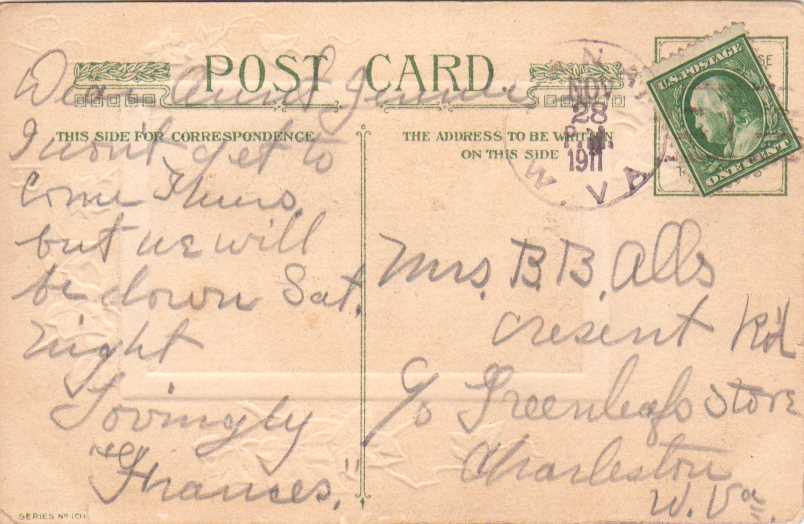 POST CARD
THIS SIDE FOR CORRESPONDENCE
THE ADDRESS TO BE WRITTEN
ON THIS SIDE
NOV
28
P.M.
1911
W. VA.
U.S. POSTAGE
ONE CENT
Dear Aunt Jennie
I won't get to
come Thurs.
but we will
be down Sat.
night
Lovingly
"Frances."
Mrs. B. B. Alls
Cresent Rd
c/o Greenleafs Store
Charleston
W. Va.
SERIES No 101